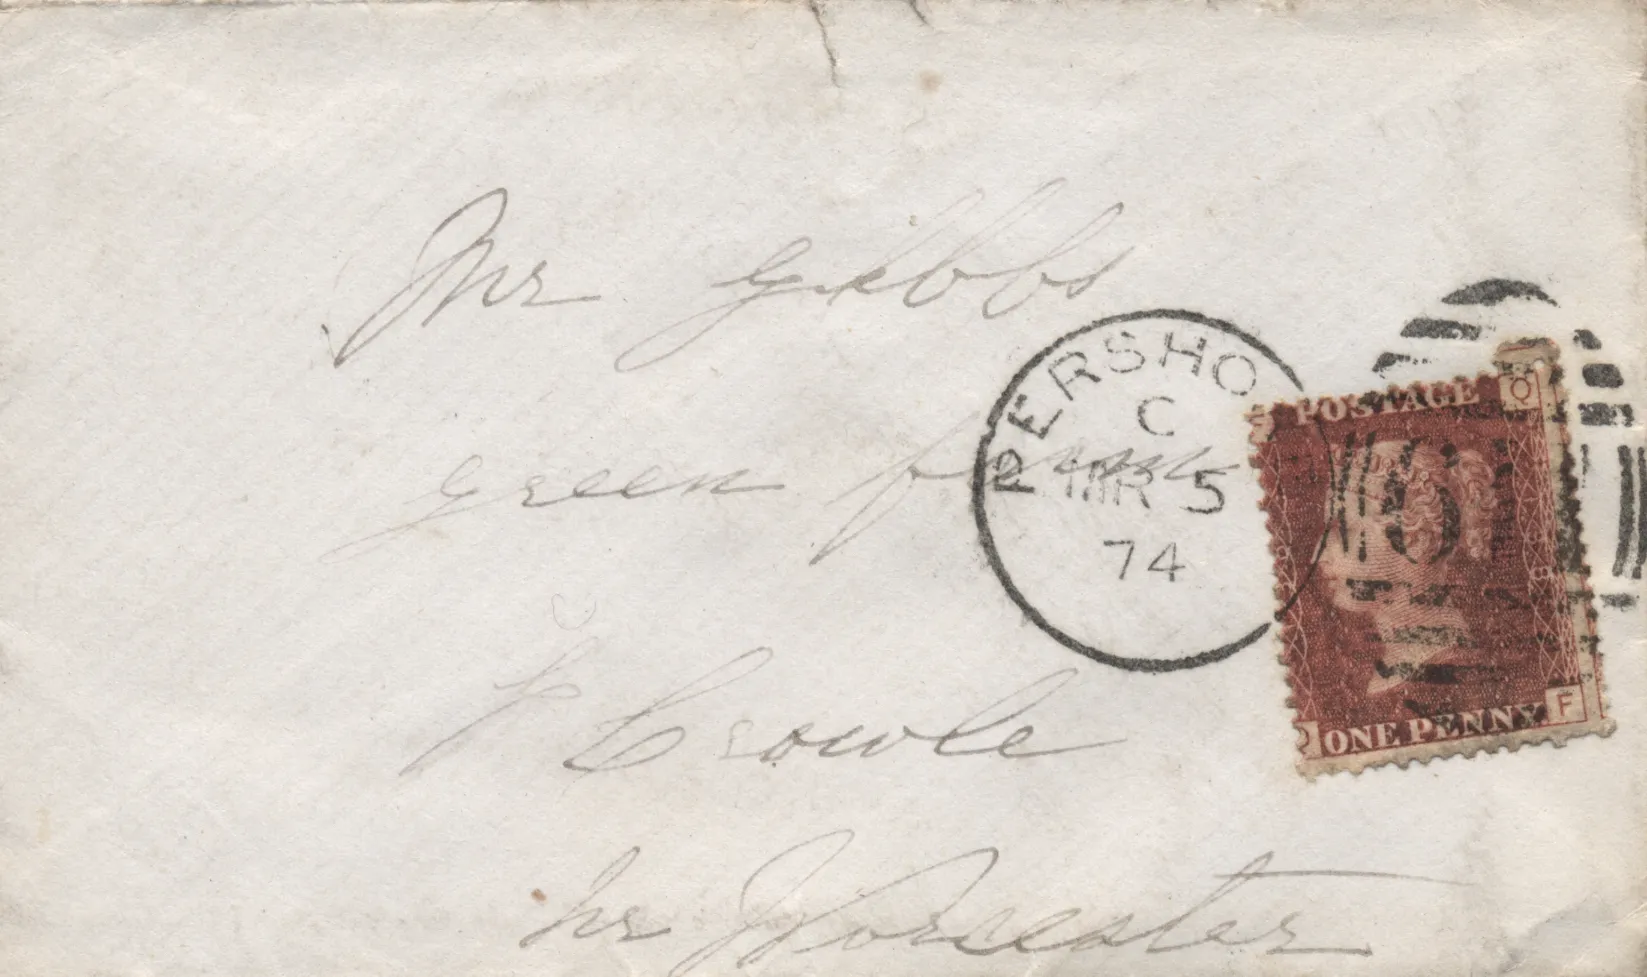 Mr Gibbs
PERSHO
C
MR 5
74
POSTAGE
Q
green farm
ONE PENNY
F
Crowle
nr Worcester